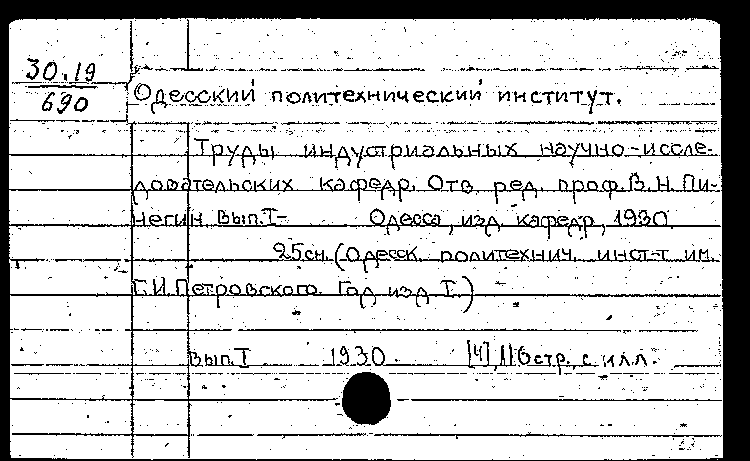 30.19
690
Одесский политехнический институт.
Труды индустриальных научно-иссле-
довательских кафедр. Отв. ред. проф. В. Н. Пи-
негин. Вып. I- Одесса, изд. кафедр, 1930.
25см. (Одесск. политехнич. инст-т им.
Г. И. Петровского. Год изд. I.)
Вып. I 1930. [4], 116 стр., с илл.